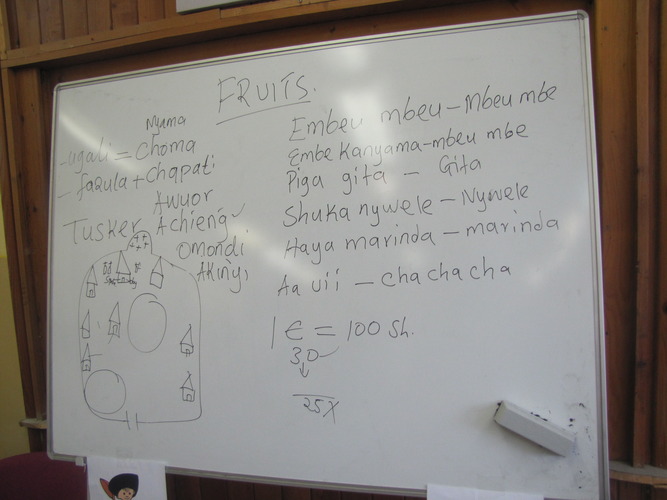 FRUITS.
Nyuma
- ugali = Choma
- faqula + Chapati
Awuor
Tusker Achieng ✓
Omondi
Akinyi
Embeu mbeu - Mbeu mbe
Embe Kanyama - mbeu mbe
Piga gita - Gita
Shuka nywele - Nywele
Haya marinda - marinda
Aa uii - chachacha
1 € = 100 Sh.
30
25X